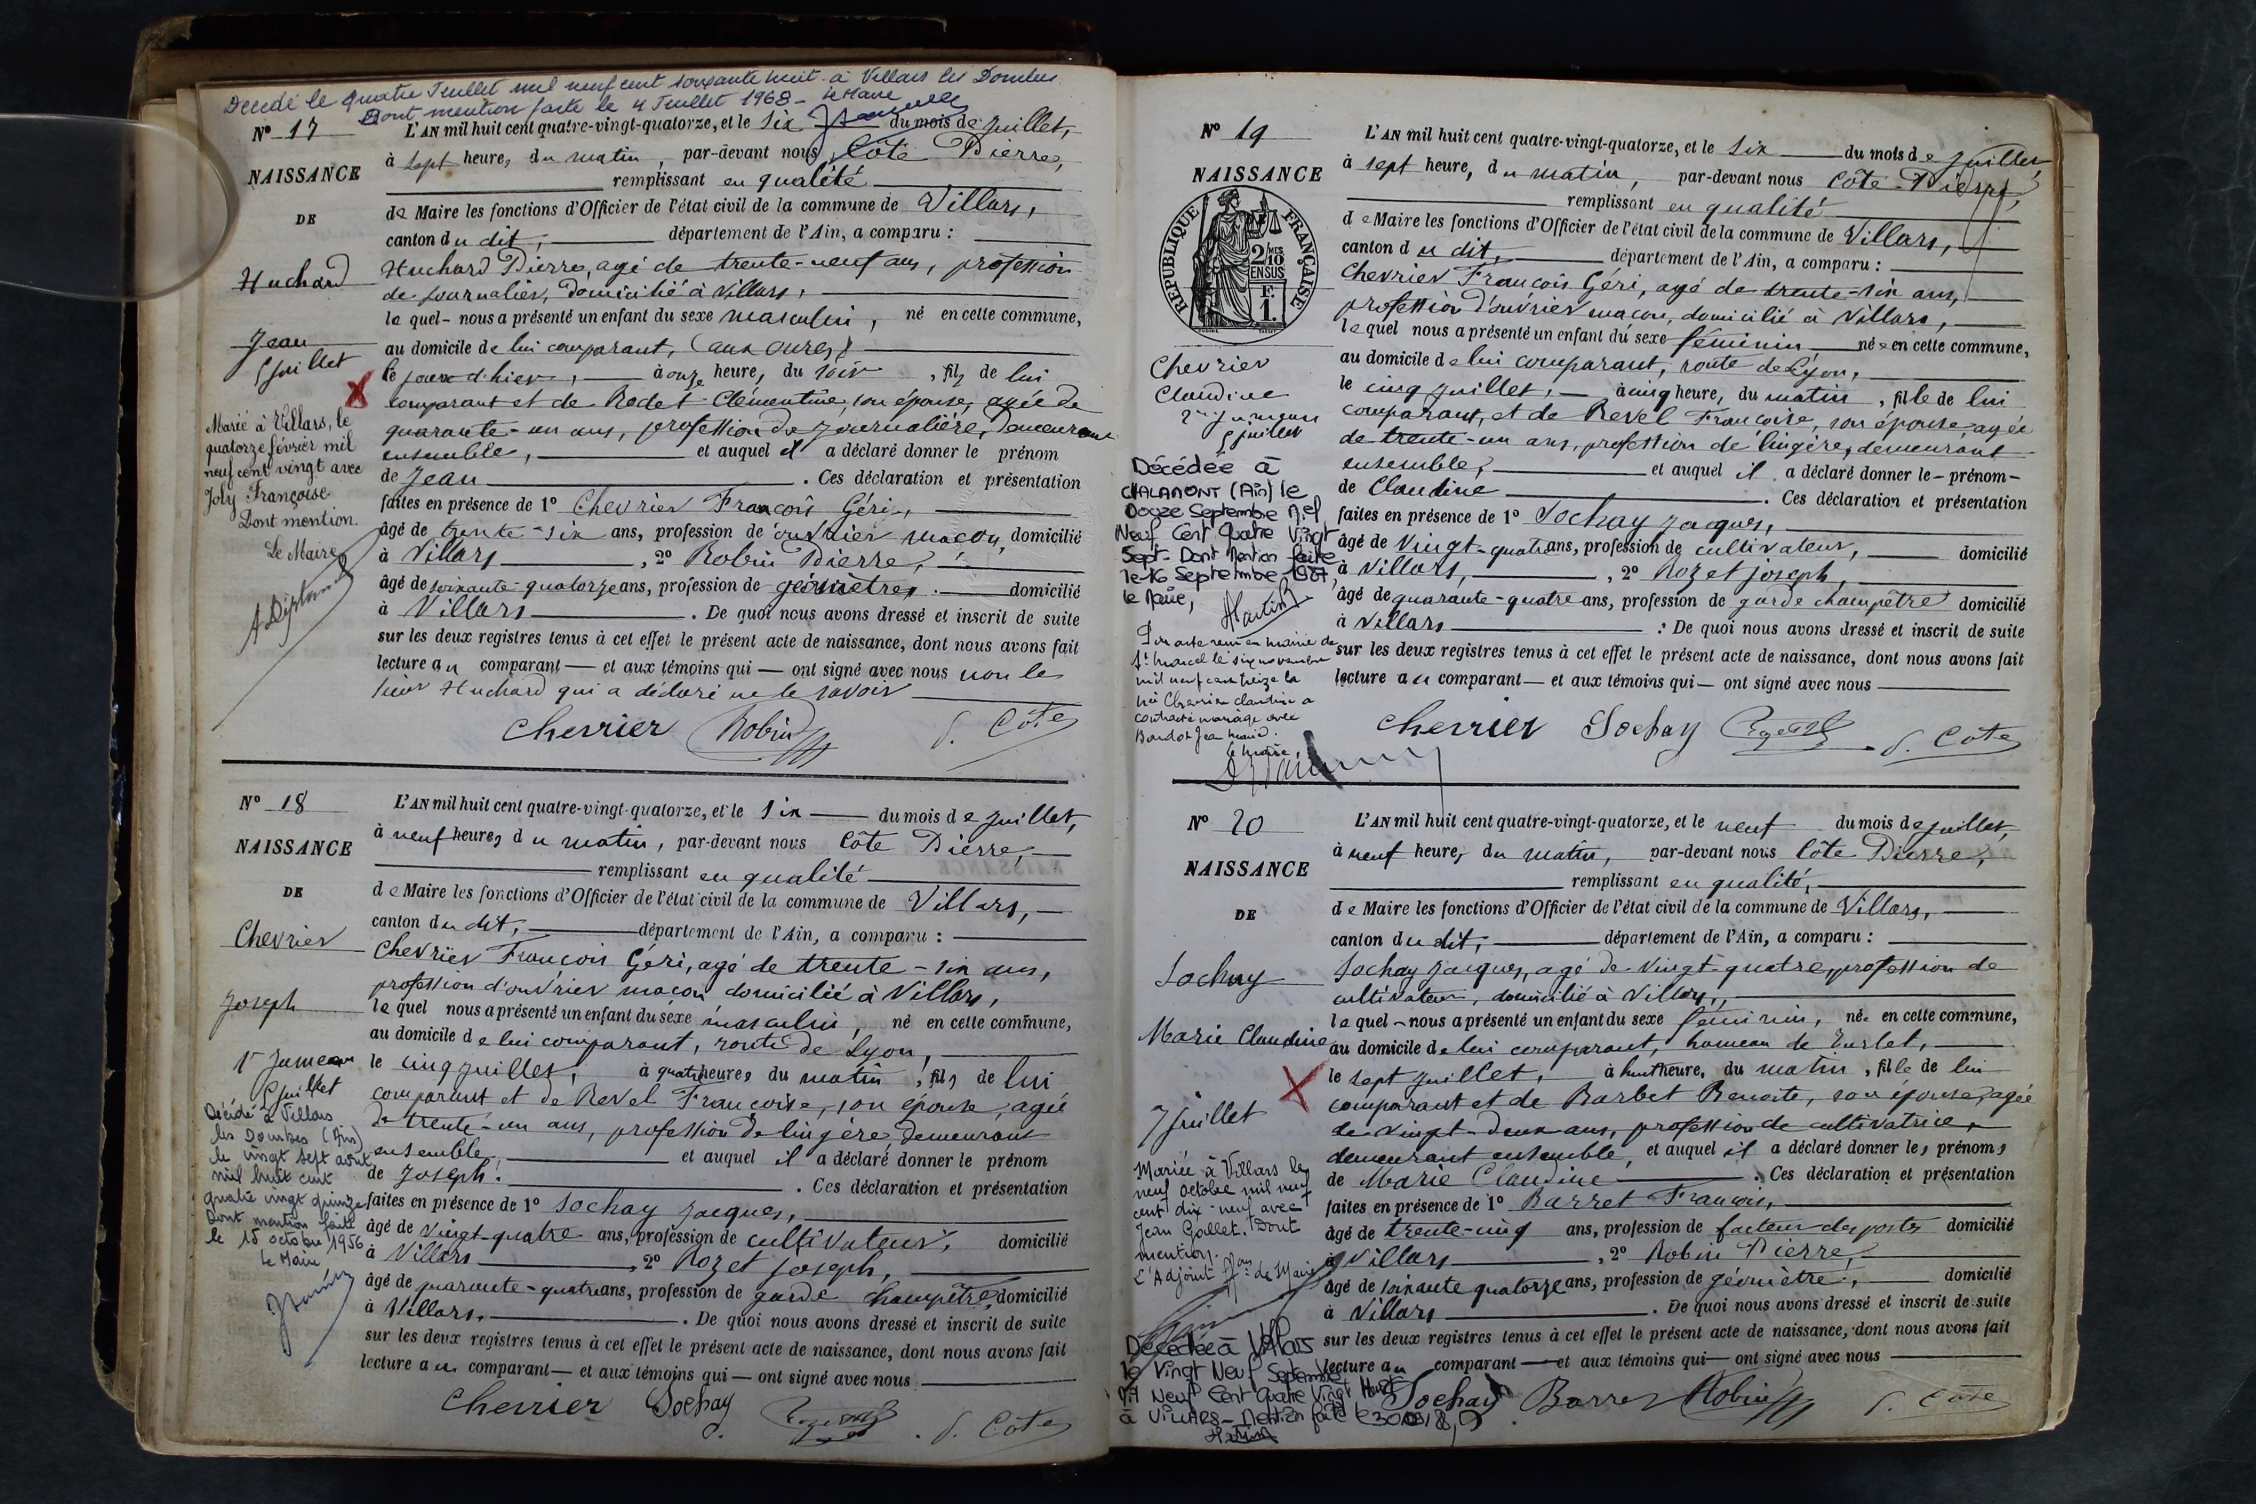 Décédé le quatre Juillet mil neuf cent soixante huit à Villars les Dombes
Dont mention faite le 4 Juillet 1968 - le Maire
N° 17
NAISSANCE
DE
Huchard
Jean
5 juillet
Marié à Villars, le
quatorze février mil
neuf cent vingt avec
Joly Françoise
Dont mention.
Le Maire
L'AN mil huit cent quatre-vingt-quatorze, et le six du mois de juillet,
à sept heures du matin, par-devant nous Côte Pierre,
remplissant en qualité
de Maire les fonctions d'Officier de l'état civil de la commune de Villars,
canton du dit, département de l'Ain, a comparu :
Huchard Pierre, agé de trente-neuf ans, profession
de journalier, domicilié à Villars,
le quel - nous a présenté un enfant du sexe masculin, né en cette commune,
au domicile de lui comparant, (aux oures)
le jour d'hier, à onze heure, du soir, fils de lui
comparant et de Rodet Clémentine, son épouse, agée de
quarante-un ans, profession de journalière, demeurant
ensemble, et auquel il a déclaré donner le prénom
de Jean . Ces déclaration et présentation
faites en présence de 1° Chevrier François Géri,
âgé de trente-six ans, profession de ouvrier maçon, domicilié
à Villars, 2° Robin Pierre,
âgé de soixante-quatorze ans, profession de géomètre, domicilié
à Villars . De quoi nous avons dressé et inscrit de suite
sur les deux registres tenus à cet effet le présent acte de naissance, dont nous avons fait
lecture au comparant — et aux témoins qui — ont signé avec nous non le
sieur Huchard qui a déclaré ne le savoir
Chevrier Robin P. Côte
N° 18
NAISSANCE
DE
Chevrier
Joseph
1er Jumeau
5 juillet
Décédé à Villars
les Dombes (Ain)
le vingt sept août
mil huit cent
quatre vingt quinze
Dont mention faite
le 15 octobre 1956
Le Maire
L'AN mil huit cent quatre-vingt-quatorze, et le six du mois de juillet,
à neuf heures du matin, par-devant nous Côte Pierre,
remplissant en qualité
de Maire les fonctions d'Officier de l'état civil de la commune de Villars,
canton du dit, département de l'Ain, a comparu :
Chevrier François Géri, agé de trente-six ans,
profession d'ouvrier maçon domicilié à Villars,
le quel nous a présenté un enfant du sexe masculin, né en cette commune,
au domicile de lui comparant, route de Lyon,
le cinq juillet, à quatre heures du matin, fils de lui
comparant et de Revel Françoise, son épouse, agée
de trente-un ans, profession de lingère, demeurant
ensemble, et auquel il a déclaré donner le prénom
de Joseph. . Ces déclaration et présentation
faites en présence de 1° Sochay Jacques,
âgé de vingt-quatre ans, profession de cultivateur, domicilié
à Villars, 2° Rozet Joseph,
âgé de quarante-quatre ans, profession de garde champêtre, domicilié
à Villars. . De quoi nous avons dressé et inscrit de suite
sur les deux registres tenus à cet effet le présent acte de naissance, dont nous avons fait
lecture au comparant — et aux témoins qui — ont signé avec nous
Chevrier Sochay P. Côte
N° 19
NAISSANCE
RÉPUBLIQUE FRANÇAISE
2/10
EN SUS
F.
1.
Chevrier
Claudine
2me Jumeau
5 juillet
Décédée à
CHALAMONT (Ain) le
Douze Septembre Mil
Neuf Cent Quatre Vingt
Sept. Dont Mention faite
le 16 Septembre 1987,
le Maire,
St Marcel le six novembre
mil neuf cent treize la
contracté mariage avec
Le Maire,
L'AN mil huit cent quatre-vingt-quatorze, et le six du mois de juillet,
à sept heure, du matin, par-devant nous Côte Pierre,
remplissant en qualité
de Maire les fonctions d'Officier de l'état civil de la commune de Villars,
canton du dit, département de l'Ain, a comparu :
Chevrier François Géri, agé de trente-six ans,
profession d'ouvrier maçon, domicilié à Villars,
le quel nous a présenté un enfant du sexe féminin née en cette commune,
au domicile de lui comparant, route de Lyon,
le cinq juillet, à cinq heure, du matin, fille de lui
comparant, et de Revel Françoise, son épouse agée
de trente-un ans, profession de lingère, demeurant
ensemble, et auquel il a déclaré donner le - prénom -
de Claudine . Ces déclaration et présentation
faites en présence de 1° Sochay Jacques,
âgé de vingt-quatre ans, profession de cultivateur, domicilié
à Villars, 2° Rozet Joseph,
âgé de quarante-quatre ans, profession de garde champêtre domicilié
à Villars . De quoi nous avons dressé et inscrit de suite
sur les deux registres tenus à cet effet le présent acte de naissance, dont nous avons fait
lecture au comparant — et aux témoins qui — ont signé avec nous
Chevrier Sochay P. Côte
N° 20
NAISSANCE
DE
Sochay
Marie Claudine
7 juillet
Mariée à Villars le
neuf octobre mil neuf
cent dix-neuf avec
Jean Gallet. Dont
mention.
L'Adjoint de Maire
Décédée à Villars
le Vingt Neuf Septembre
Mil Neuf Cent Quatre Vingt
à Villars - Mention faite le
L'AN mil huit cent quatre-vingt-quatorze, et le neuf du mois de juillet,
à neuf heure, du matin, par-devant nous Côte Pierre,
remplissant en qualité,
de Maire les fonctions d'Officier de l'état civil de la commune de Villars,
canton du dit, département de l'Ain, a comparu :
Sochay Jacques, agé de vingt-quatre, profession de
cultivateur, domicilié à Villars,
le quel - nous a présenté un enfant du sexe féminin, née en cette commune,
au domicile de lui comparant, hameau de
le sept juillet, à huit heure, du matin, fille de lui
comparant et de Barbet Benoite, son épouse, agée
de vingt-deux ans, profession de cultivatrice,
demeurant ensemble, et auquel il a déclaré donner les prénoms
de Marie Claudine . Ces déclaration et présentation
faites en présence de 1° Barret François,
âgé de trente-cinq ans, profession de facteur des postes domicilié
à Villars, 2° Robin Pierre,
âgé de soixante quatorze ans, profession de géomètre, domicilié
à Villars . De quoi nous avons dressé et inscrit de suite
sur les deux registres tenus à cet effet le présent acte de naissance, dont nous avons fait
lecture au comparant — et aux témoins qui — ont signé avec nous
Sochay Barret Robin P. Côte